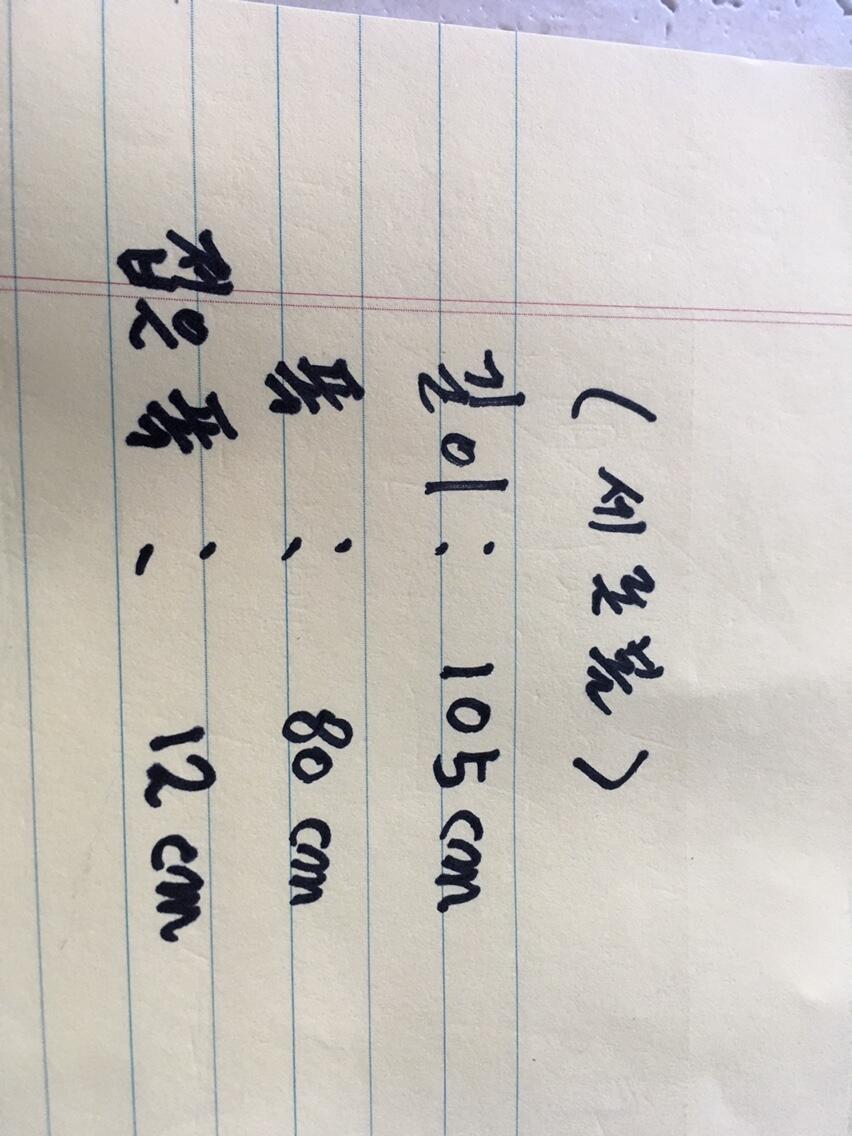 (세로폴)
길이 : 105 cm
폭 : 80 cm
접은 폭 : 12 cm